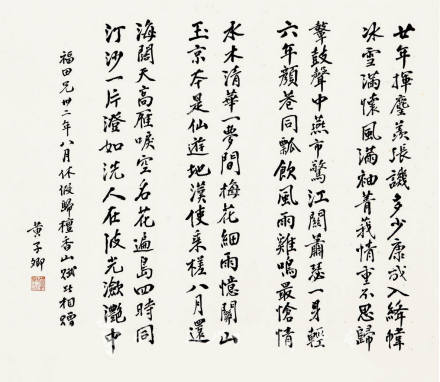 廿年揮麈羨張譏多少康成入絳幃
冰雪滿懷風滿袖菁莪情重不思歸
鼙鼓聲中燕市驚江關蕭瑟一身輕
六年顏巷同瓢飲風雨雞鳴最愴情
水木清華一夢間梅花細雨憶關山
玉京本是仙遊地漢使乘槎八月還
海闊天高雁唳空名花遍島四時同
汀沙一片澄如洗人在波光瀲灩中
福田兄卅二年八月休假歸檀香山賦此相贈
黃子卿